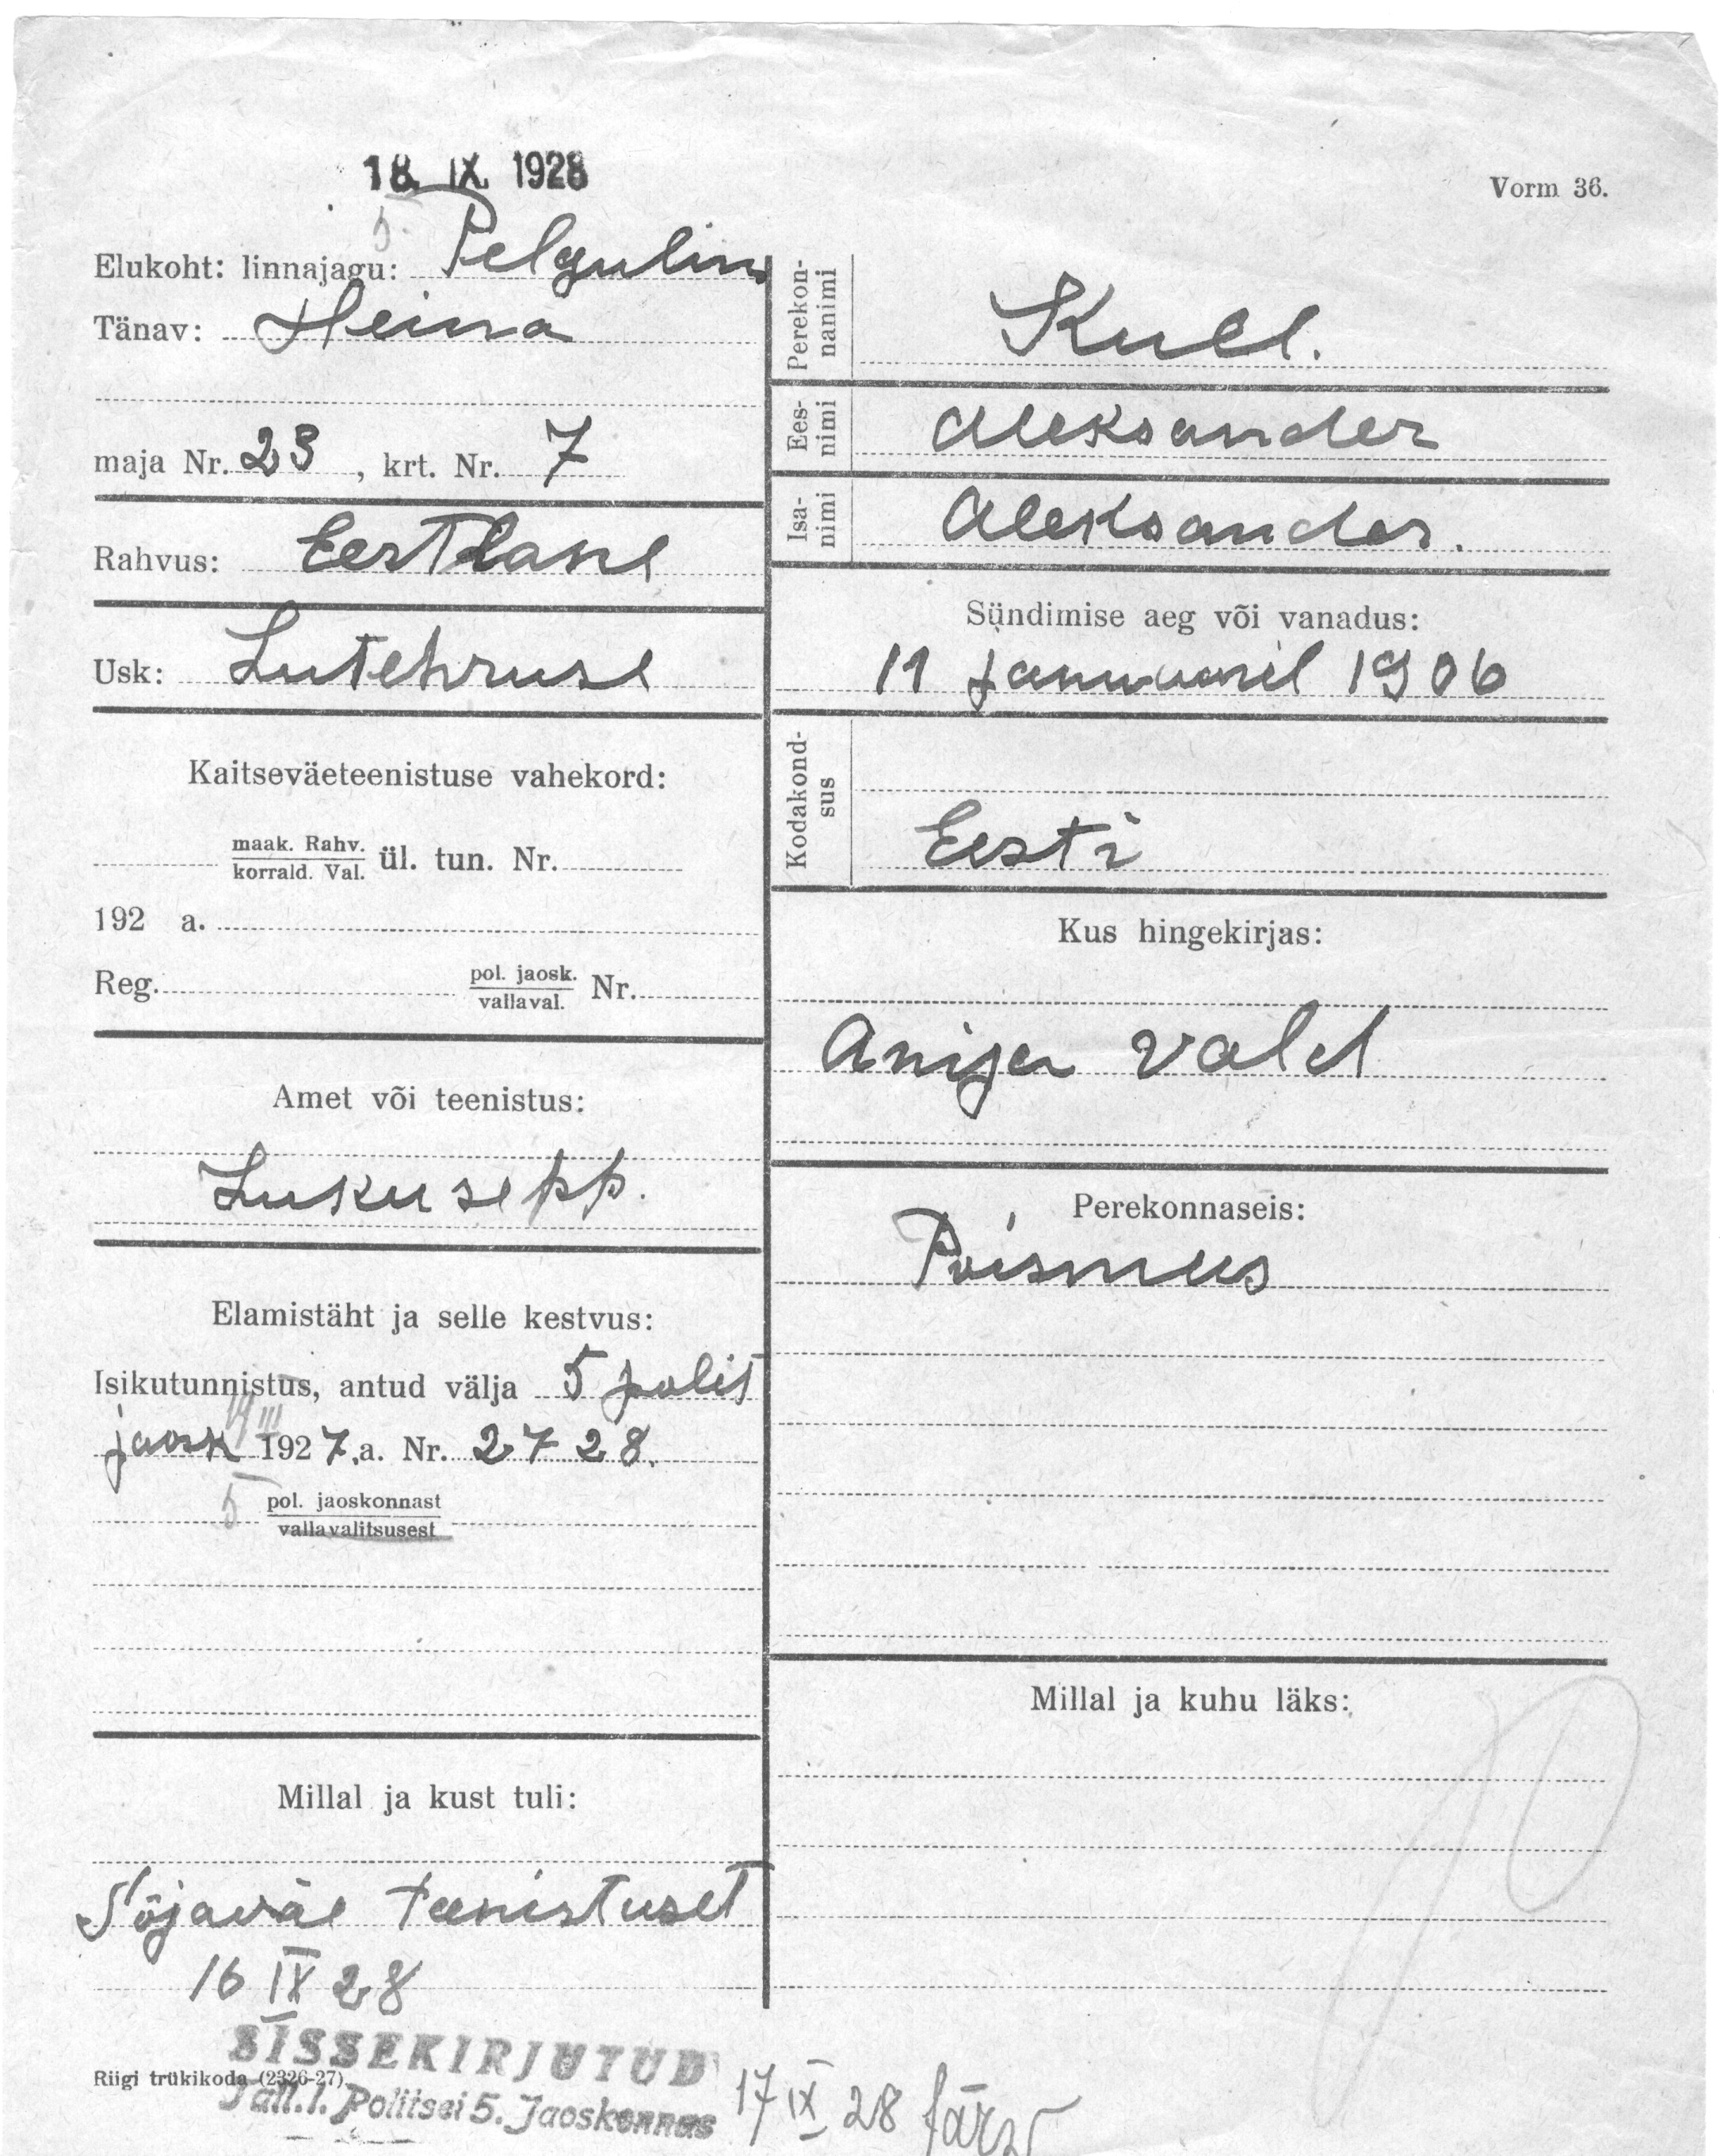 18. IX. 1928
Vorm 36.
5.
Elukoht: linnajagu: Pelgulinn
Tänav: Heina
maja Nr. 23, krt. Nr. 7
Rahvus: Eestlane
Usk: Lutehruse
Kaitseväeteenistuse vahekord:
maak. Rahv.
korrald. Val. ül. tun. Nr.
192 a.
Reg. pol. jaosk. Nr.
vallaval.
Amet või teenistus:
Lukusepp.
Elamistäht ja selle kestvus:
Isikutunnistus, antud välja 5 polit
jaosk 14 III 1927.a. Nr. 2728.
5 pol. jaoskonnast
vallavalitsusest
Millal ja kust tuli:
Sõjaväe teenistuset
16 IX 28
Perekonnanimi
Kull.
Eesnimi
Aleksander
Isanimi
Aleksander.
Sündimise aeg või vanadus:
11 januaril 1906
Kodakondsus
Eesti
Kus hingekirjas:
Anija vald
Perekonnaseis:
Poismees
Millal ja kuhu läks:
SISSEKIRJUTUD
Riigi trükikoda (2326-27).
Tall. l. Politsei 5. Jaoskonnas
17 IX 28